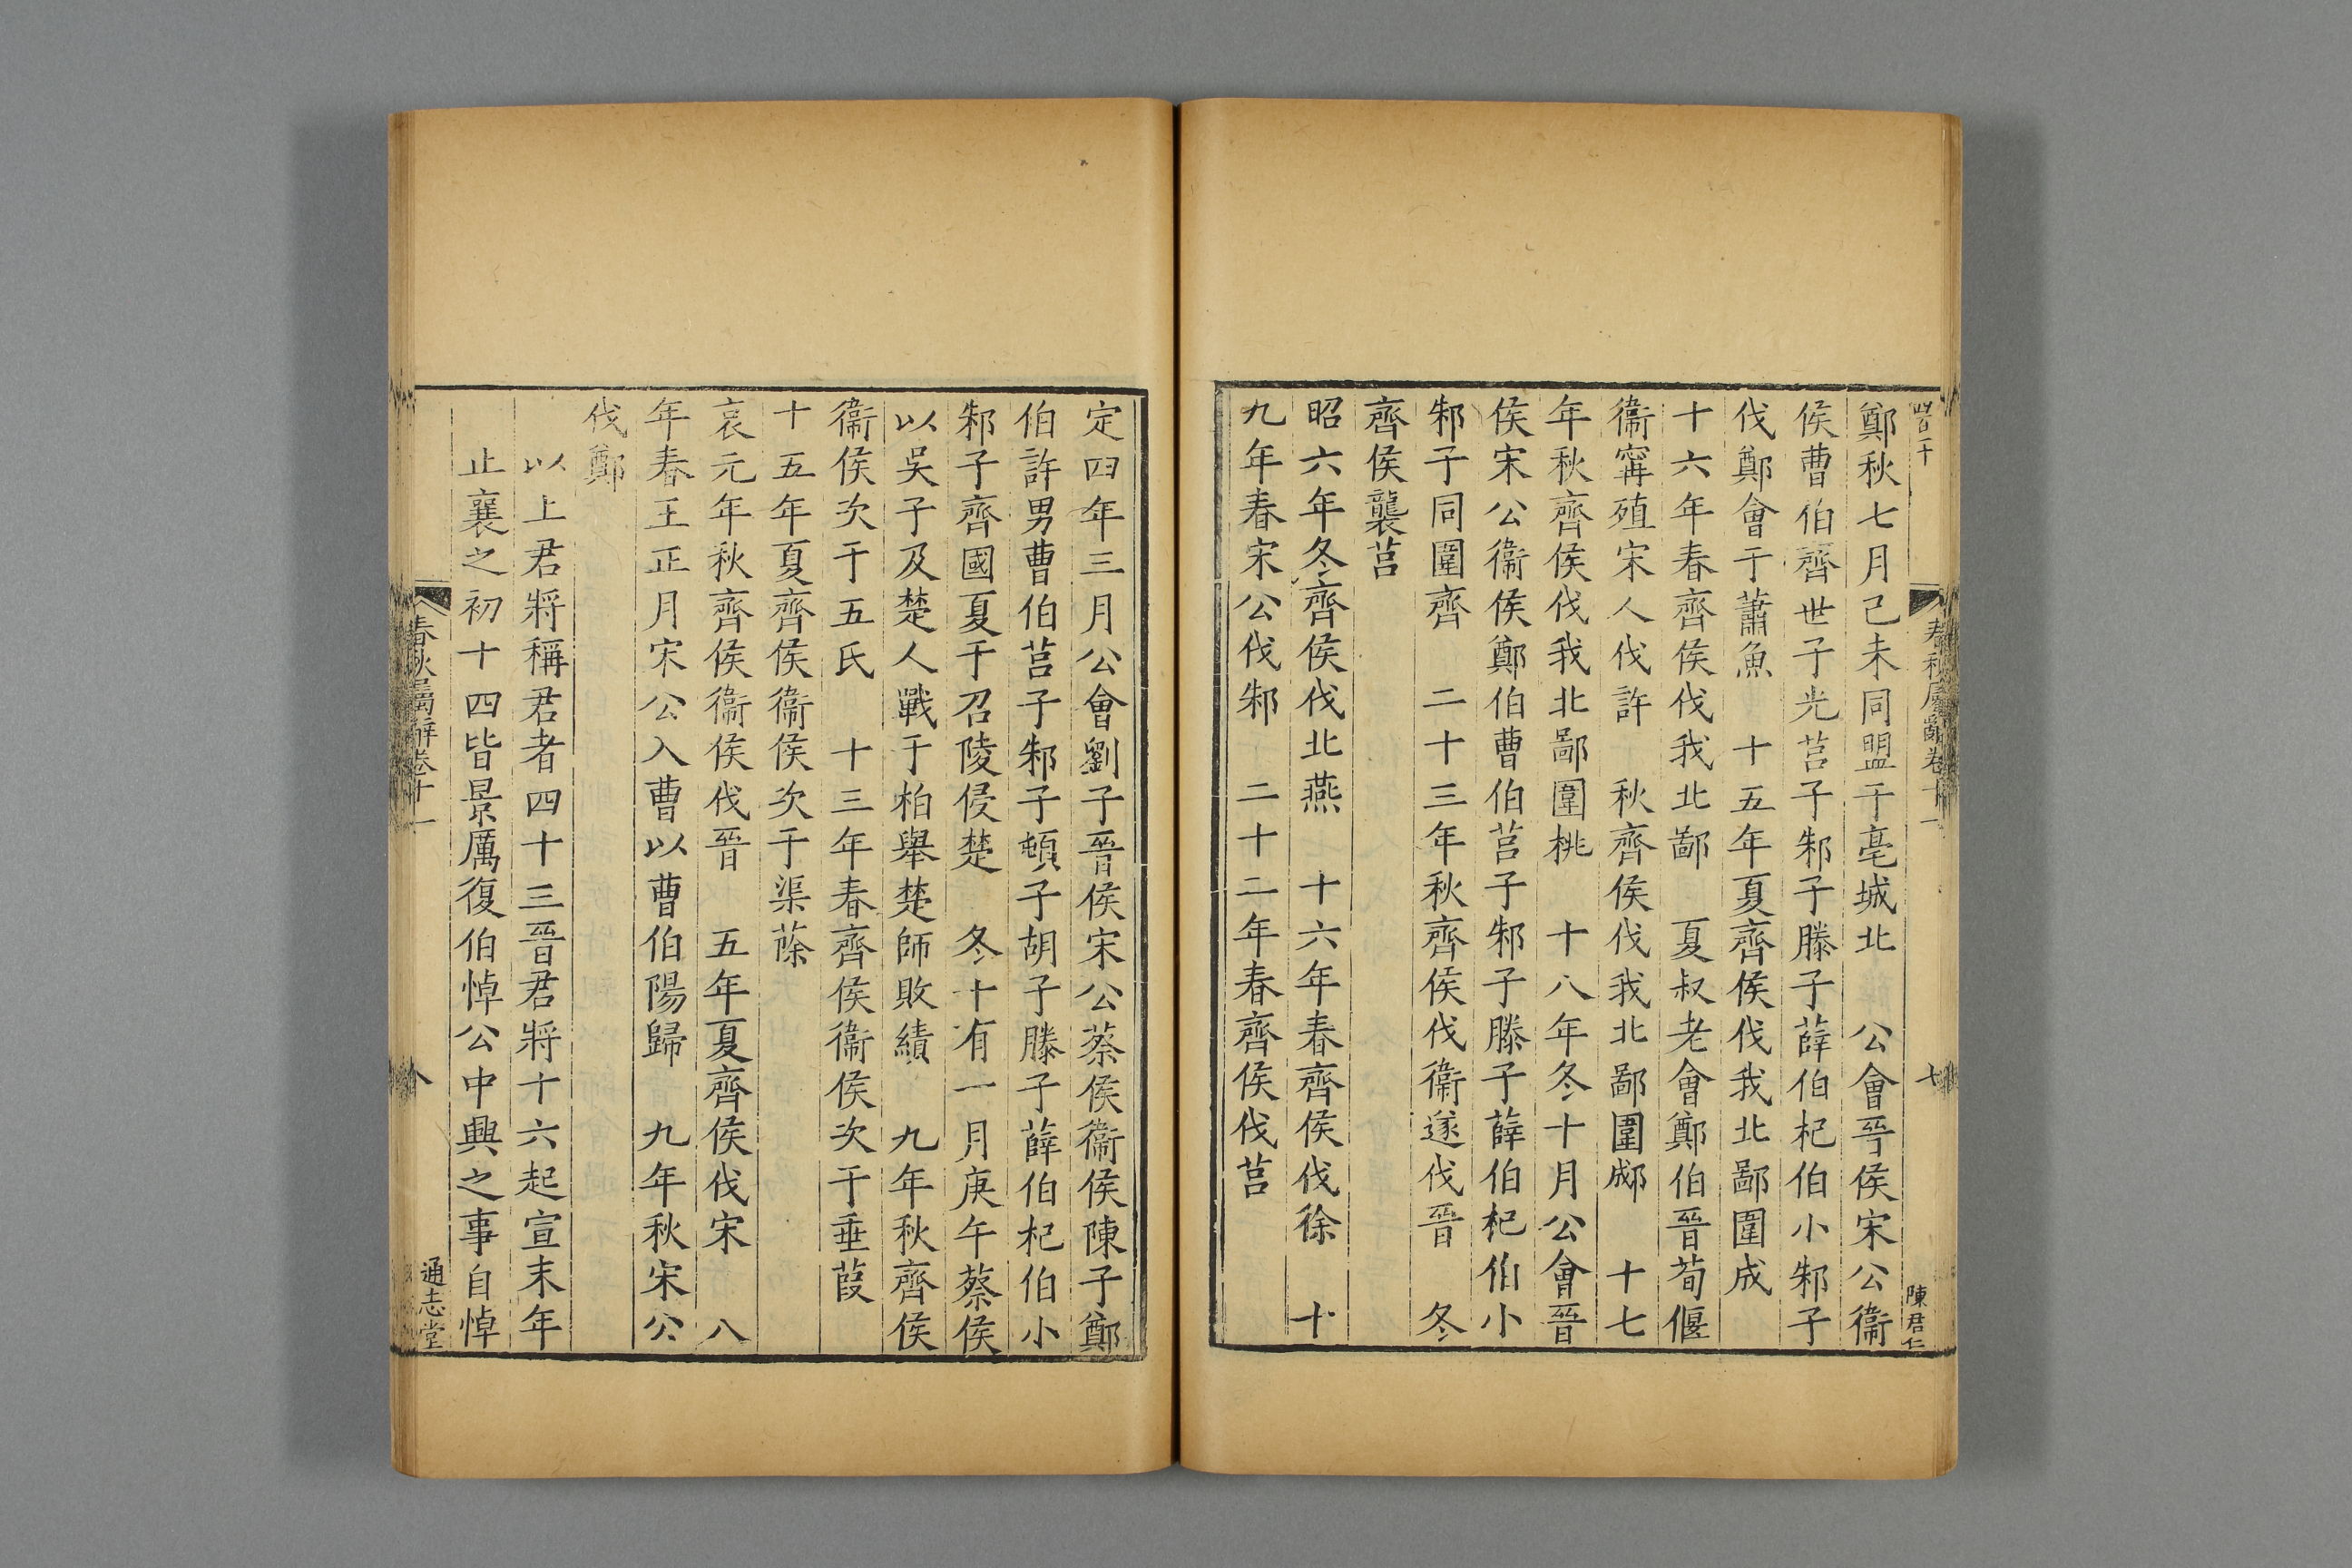 鄭秋七月己未同盟于亳城北　公會晉侯宋公衞
侯曹伯齊世子光莒子邾子滕子薛伯杞伯小邾子
伐鄭會于蕭魚　十五年夏齊侯伐我北鄙圍成
十六年春齊侯伐我北鄙　夏叔老會鄭伯晉荀偃
衞甯殖宋人伐許　秋齊侯伐我北鄙圍郕　十七
年秋齊侯伐我北鄙圍桃　十八年冬十月公會晉
侯宋公衞侯鄭伯曹伯莒子邾子滕子薛伯杞伯小
邾子同圍齊　二十三年秋齊侯伐衞遂伐晉　冬
齊侯襲莒
昭六年冬齊侯伐北燕　十六年春齊侯伐徐　十
九年春宋公伐邾　二十二年春齊侯伐莒
春秋屬辭卷十一
七
陳君仁
定四年三月公會劉子晉侯宋公蔡侯衞侯陳子鄭
伯許男曹伯莒子邾子頓子胡子滕子薛伯杞伯小
邾子齊國夏于召陵侵楚　冬十有一月庚午蔡侯
以吳子及楚人戰于柏舉楚師敗績　九年秋齊侯
衞侯次于五氏　十三年春齊侯衞侯次于垂葭
十五年夏齊侯衞侯次于渠蒢
哀元年秋齊侯衞侯伐晉　五年夏齊侯伐宋　八
年春王正月宋公入曹以曹伯陽歸　九年秋宋公
伐鄭
以上君將稱君者四十三晉君將十六起宣末年
止襄之初十四皆景厲復伯悼公中興之事自悼
春秋屬辭卷十一
八
通志堂